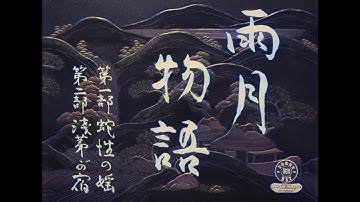 雨月
物語
第一部 蛇性の婬
第二部 浅茅が宿